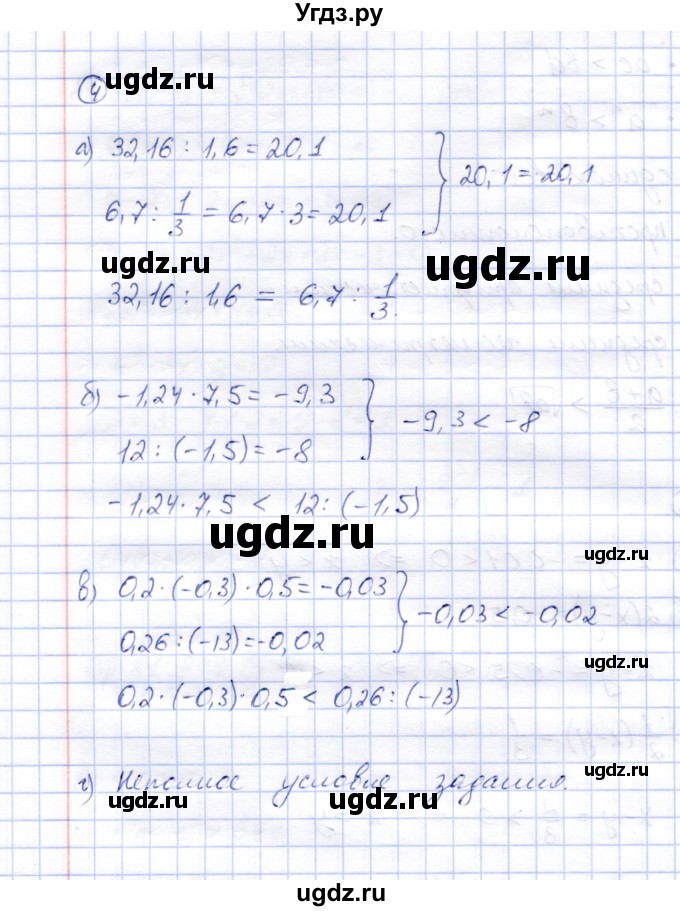 Угдз.ру
ugdz.ru
4
а) 32,16 : 1,6 = 20,1
6,7 : 1/3 = 6,7 · 3 = 20,1 } 20,1 = 20,1
ugdz.ru
ugdz.ru
32,16 : 1,6 = 6,7 : 1/3.
б) -1,24 · 7,5 = -9,3
12 : (-1,5) = -8 } -9,3 < -8
-1,24 · 7,5 < 12 : (-1,5)
ugdz.ru
ugdz.ru
в) 0,2 · (-0,3) · 0,5 = -0,03
0,26 : (-13) = -0,02 } -0,03 < -0,02
ugdz.ru
0,2 · (-0,3) · 0,5 < 0,26 : (-13)
г) Неполное условие задания.
ugdz.ru
ugdz.ru
ugdz.ru
ugdz.ru
ugdz.ru